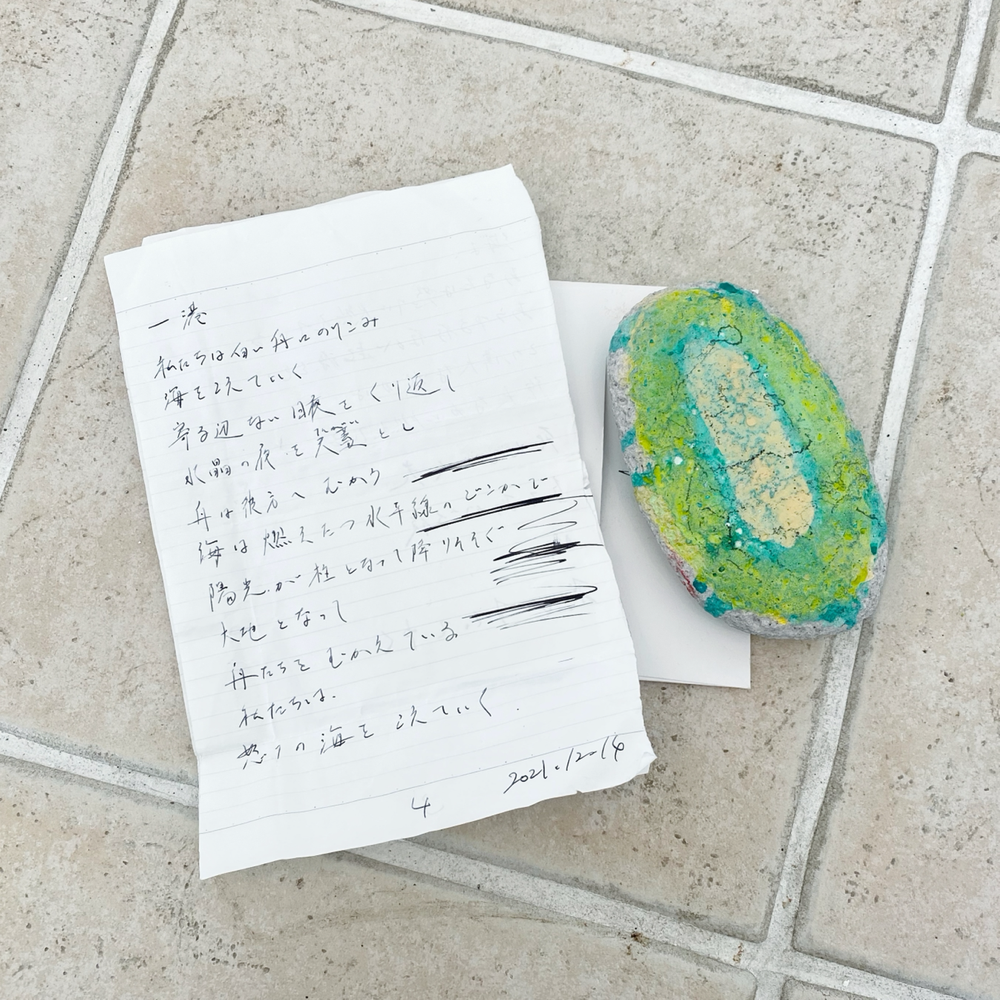 一 港
私たちは白い舟にのりこみ
海を越えていく
寄る辺ない眼をくり返し
水晶の夜を天蓋とし
舟は彼方へむかう
海は燃えたつ水平線のどこかで
陽光が柱となって降りそそぐ
大地となって
舟たちをむかえている
私たちは、
怒りの海を越えていく.
4
2021.12.14